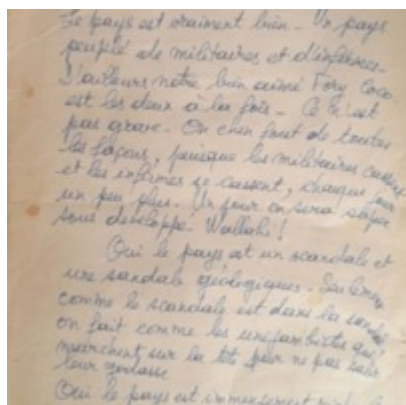 Le pays est vraiment bien. Un pays
peuplé de militaires et d'infirmes.
D'ailleurs notre bien aimé Fory Coco
est les deux à la fois. Ce n'est
pas grave. On s'en fout de toutes
les façons, puisque les militaires
et les infirmes se cassent, chaque jour
un peu plus. Un jour on sera super
sous développé. Wallahi!
Oui le pays est un scandale et
une sandale géologiques. Seulement
comme le scandale est dans la sandale
on fait comme les unijambistes qui
marchent sur la tête pour ne pas salir
leur godasse
Oui le pays est immensément